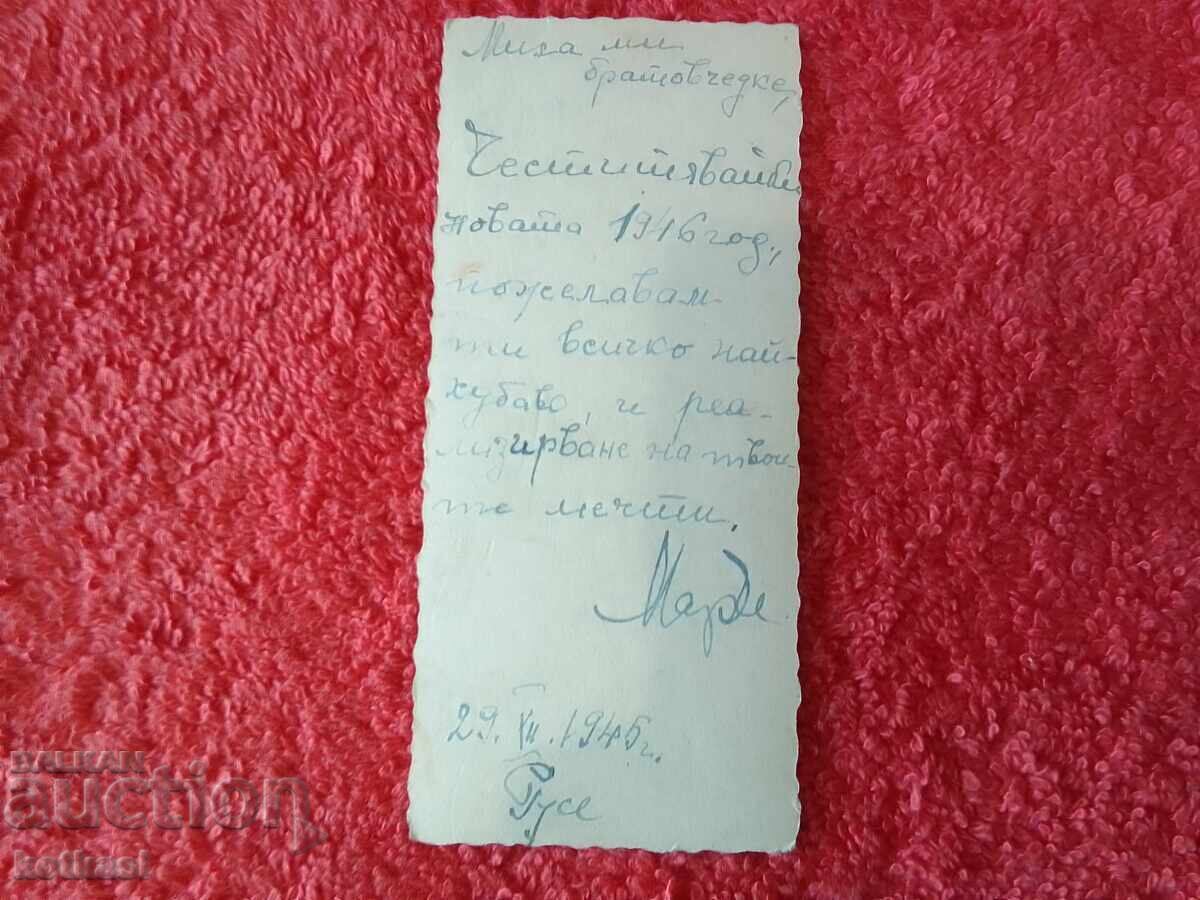 Миха ми
братовчедке,
Честитявайки
новата 1946 год.,
пожелавам
ти всичко най-
хубаво, и реа-
лизирване на твои-
те мечти.
29. XII. 1945 г.
Русе
BALKAN
auction
kotkasi